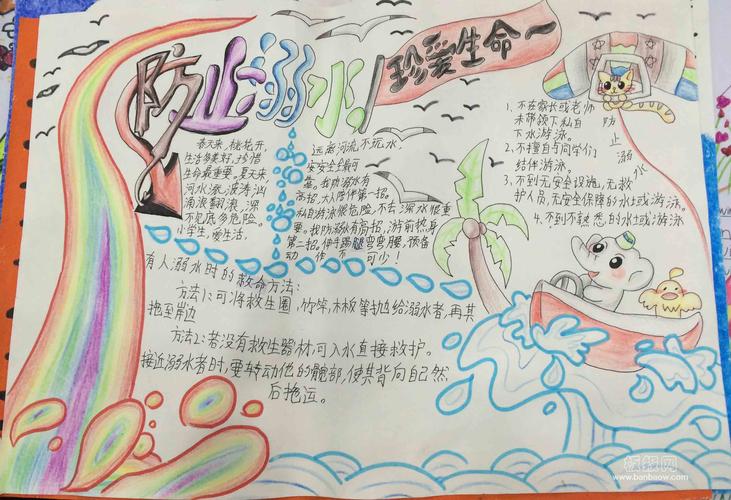 防止溺水！
珍爱生命
春天来，桃花开，
生活多美好，珍惜
生命最重要。夏天来
河水涨，波涛汹
涌浪翻滚，深
不见底多危险。
小学生，爱生活，
远离河流不玩水，
安安全全最可
靠。我防溺水有
高招，大人陪伴第一招。
私自游泳很危险，不去深水很重
要。我防溺水有高招，游前热身
第二招，伸手踢腿弯弯腰，预备
动作不可少！
1、不在家长或老师
未带领下私自
下水游泳。
2、不擅自与同学们
结伴游泳。
3、不到无安全设施，无救
护人员，无安全保障的水土或游泳。
4、不到不熟悉的水土或游泳
防止溺水
有人溺水时的救命方法：
方法1：可将救生圈，竹竿，木板等抛给溺水者，再其
拖至岸边
方法2：若没有救生器材，可入水直接救护。
接近溺水者时，要转动他的髋部，使其背向自己然
后拖运。
板报网
www.banbaow.com